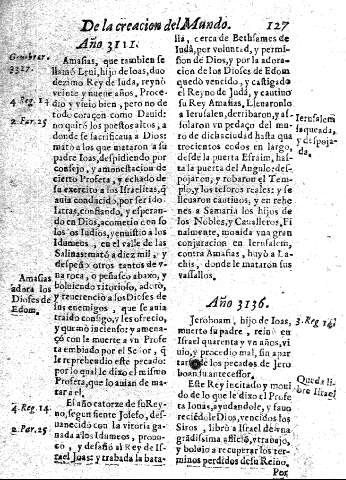 De la creacion del Mundo. 127
Año 3111.
Genebrar.
3327.
4. Reg. 14
2. Par. 25
Amasias
adora los
Dioses de
Edom.
4. Reg. 14.
2. Par. 25.
Amasias, que tambien se
llamó Leui, hijo de Ioas, duo
decimo Rey de Iuda, reynó
veinte y nueue años. Proce
dio y viuio bien, pero no de
todo coraçon como Dauid:
no quitó los puestos altos, a
donde se sacrifica a Dios:
mató a los que mataron a su
padre Ioas, despidiendo por
consejo, y amonestacion de
cierto Profeta, y echado de
su exercito a los Israelitas, q̃
auia conducido, por ser ido
latras, confiando, y esperan-
do en Dios, acometio con so
los los Iudios, y enuistio a los
Idumeos, en el valle de las
Salinas: mató a diez mil, y
despeño otros tantos de v-
na roca, o peñasco abaxo, y
boluiendo vitorioso, adoró,
y reuerenció a los Dioses de
los enemigos, que se auia
traido consigo, y les ofrecio,
y quemó incienso: y amena-
çó con la muerte a vn Profe
ta embiado por el Señor, q̃
le reprehendio este pecado:
por lo qual le dixo el mismo
Profeta, que lo auian de ma-
tar a el.
El año catorze de su Rey-
no, segun siente Josefo, des-
uanecido con la vitoria ga
nada a los Idumeos, prouo-
có, y desafió al Rey de Is-
rael Joas: y trabada la bata-
lla, cerca de Bethsames de
Iudà, por voluntad, y permis-
sion de Dios, y por la adora
cion de los Dioses de Edom
quedò vencido, y castigado
el Reyno de Iudà, y cautiuo
su Rey Amasias. Lleuaronlo
a Ierusalen, derribaron, y as-
solaron vn pedaço del mu-
ro de dicha ciudad hasta qua
trocientos codos en largo,
desde la puerta Efraim, has-
ta la puerta del Angulo: des-
pojaron, y robaron el Tem-
plo, y los tesoros reales: y se
lleuaron cautiuos, y en rehe
nes a Samaria los hijos de
los Nobles, y Caualleros. Fi
nalmente, mouida vna gran
conjuracion en Ierusalem,
contra Amasias, huyò a La-
chis, donde le mataron sus
vassallos.
Ierusalem
saqueada,
y despoja-
da.
Año 3136.
Jeroboam, hijo de Ioas,
muerto su padre, reinò en
Israel quarenta y vn años, vi
uio, y procedio mal, sin apar
tarse de los pecados de Jero
boan su antecessor.
Este Rey incitado y moui
do de lo que le dixo el Profe
ta Ionas, ayudandole, y fauo
reciendole Dios, vencidos los
Siros, librò a Israel de vna
grãdissima aflicciõ, y trabajo,
y boluio a recuperar los ter-
minos perdidos de su Reino.
Por
3. Reg. 14.
Queda li-
bre Israel.